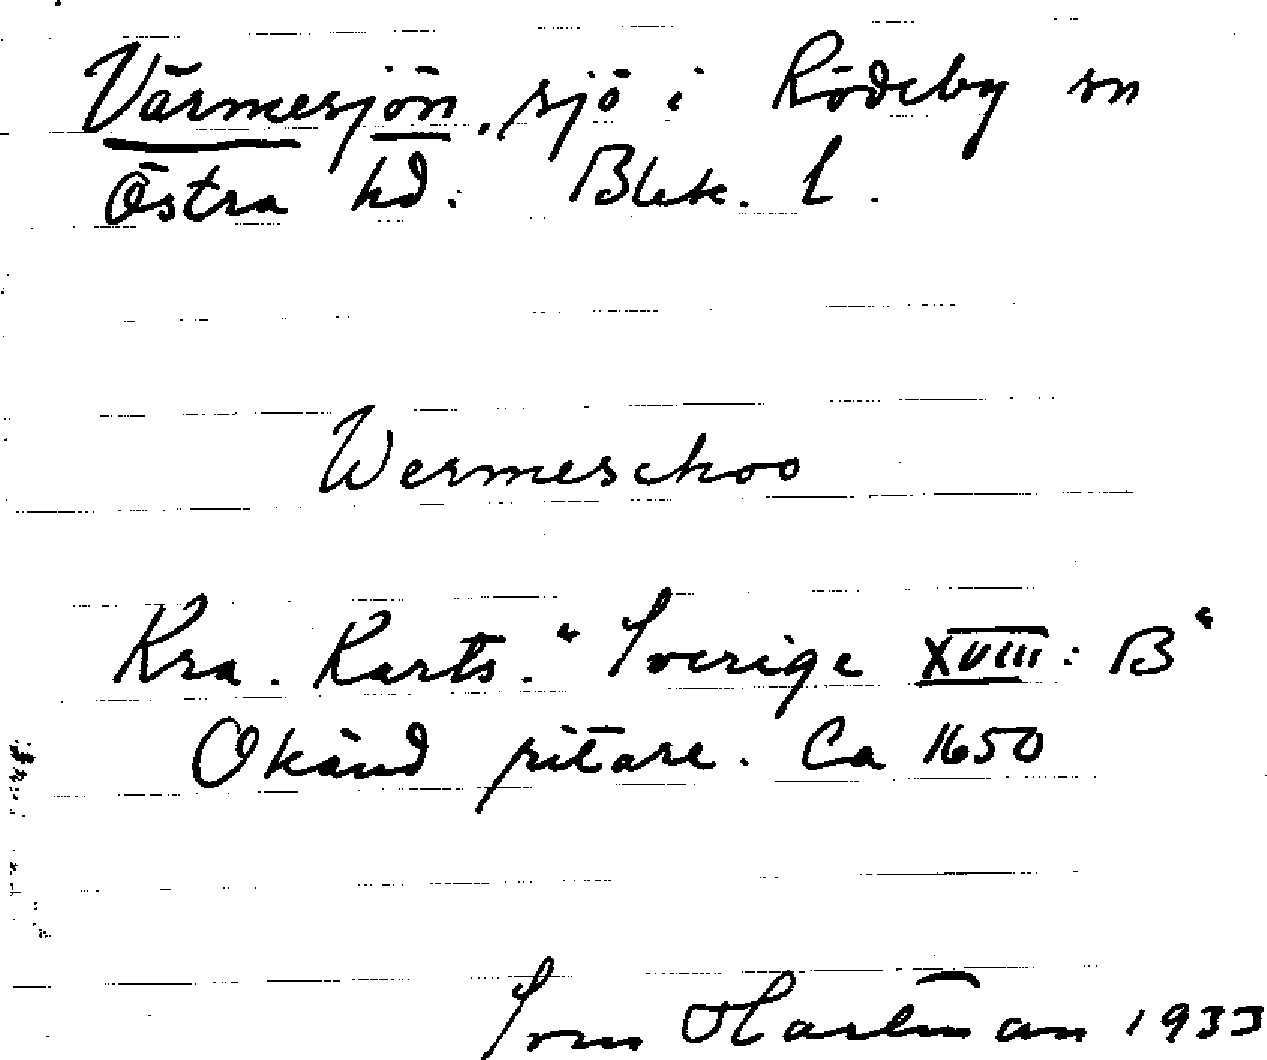 Värmesjön, sjö i Rödeby sn
Östra hd. Blek. l.
Wermeschoo
Kra. Karts. "Sverige XVIII: B"
Okänd ritare. Ca 1650
Sven Hartman 1933